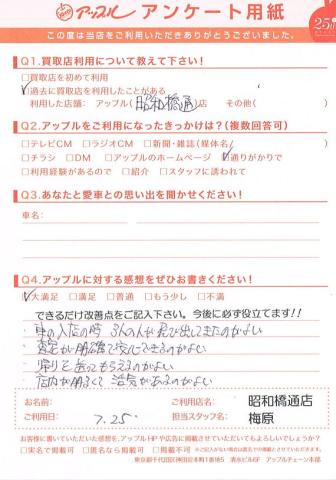 アップル アンケート用紙
25th
この度は当店をご利用いただきありがとうございました。
Q1.買取店利用について教えて下さい!
□買取店を初めて利用
☑過去に買取店を利用したことがある
利用した店舗: アップル(昭和橋通)店 その他( )
Q2.アップルをご利用になったきっかけは?(複数回答可)
□テレビCM □ラジオCM □新聞・雑誌(媒体名 ) 
□チラシ □DM □アップルのホームページ ☑通りがかりで
□利用経験があるので □紹介 □スタッフに誘われて
Q3.あなたと愛車との思い出を聞かせください!
車名:
Q4.アップルに対する感想をぜひお書きください!
☑大満足 □満足 □普通 □もう少し □不満
できるだけ改善点をご記入下さい。今後に必ず役立てます!!
・車の入店の時 3人の人が飛び出してきたのがよい
・査定が明確で安心できるのがよい
・帰りを送ってもらえるのがよい
・店内が明るくて活気があるのがよい
お名前:
ご利用店名: 昭和橋通店
ご利用日: 7.25
担当スタッフ名: 梅原
お客様に書いていただいた感想を、アップルHPや広告に掲載させていただいてもよろしいでしょうか?
□実名で掲載可 □匿名なら掲載可 □掲載不可
東京都千代田区神田岩本町1番地5 清水ビル6F アップルチェーン本部